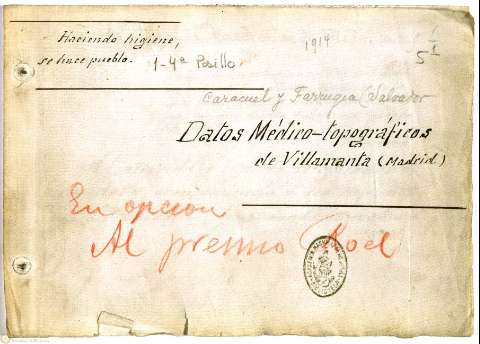 Haciendo higiene,
se hace pueblo.
1-4ª Pasillo
1914
5
Caracuel y Farrugia (Salvador
Datos Médico-topográficos
de Villamanta (Madrid.)
En opción
Al premio Roel